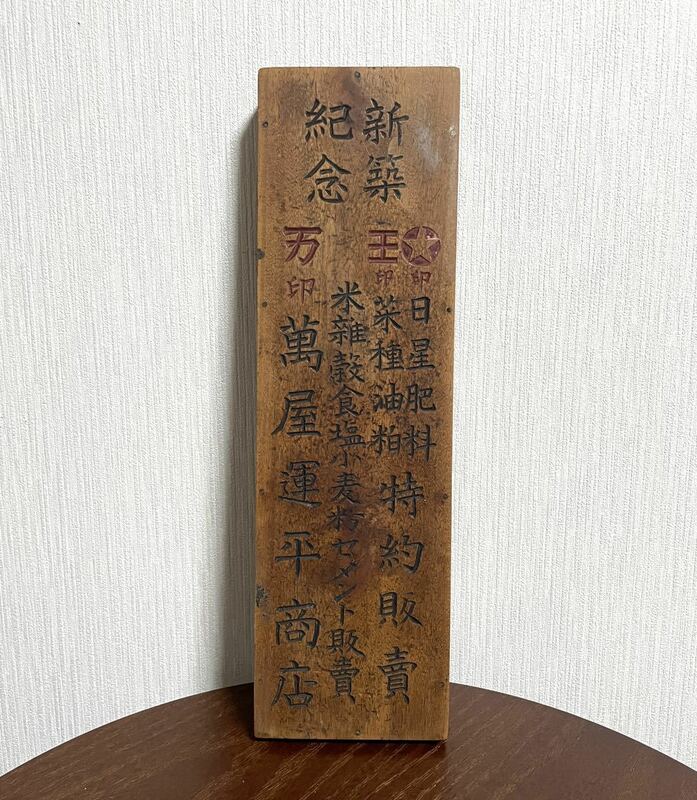 新築
紀念
印 日星肥料
王印 菜種油粕
特約販賣
米雜穀食塩小麦粉セメント販賣
万印 萬屋運平商店